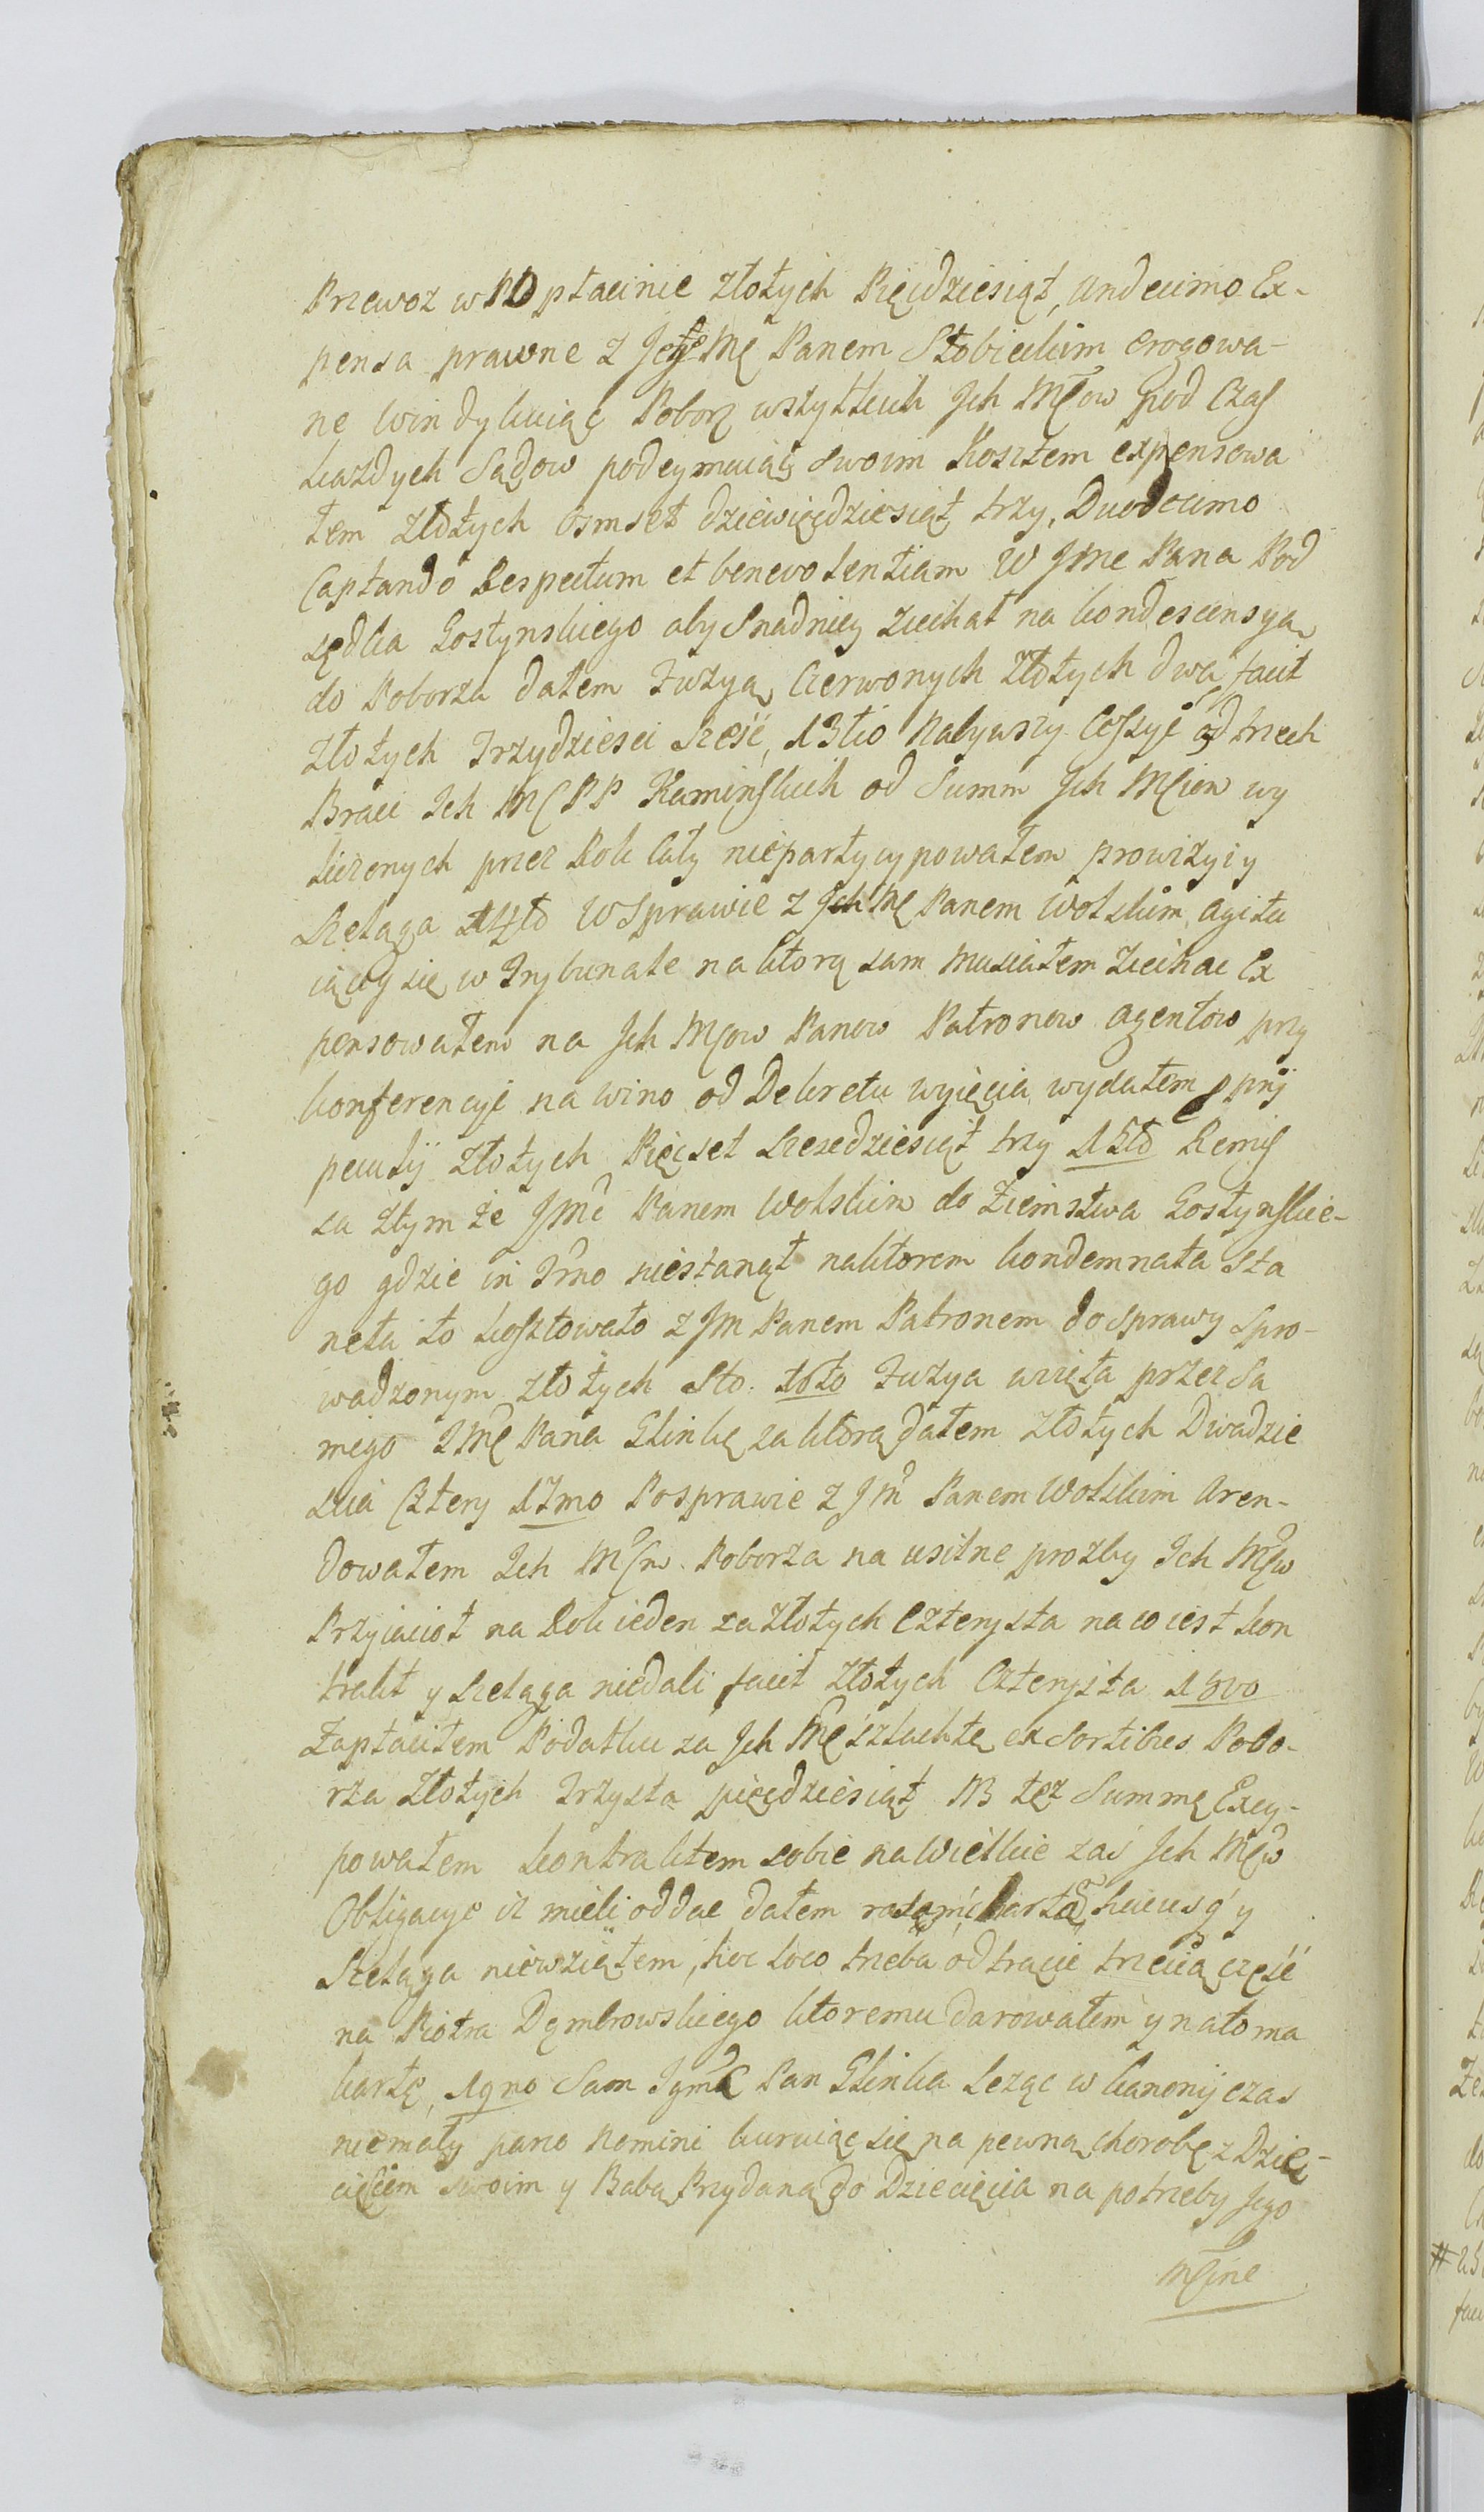 Przewoz w płacinie Złotych Pięcdziesiąt, Undecimo Ex-
pensa prawne z Mę Panem Słobieckim erogowa-
ne Windykuiąc Poborz wszytkich Ich Męow pod Czas
każdych Sądow podeymuiąc swoim Kosztem expensowa
łem Złotych osmset dziewięcdziesiąt trzy, Duodecimo
Captando Respectum et benevolentiam W Jme Pana Pod
sędka Gostynskiego aby Snadniey ziechał na kondescensyą
do Poborza dałem Fuzyą Czerwonych Złotych dwa facit
Złotych Trzydziesci Szesć, 13tio Nabywszy Cessye od trzech
Braci Ich MC PP Kaminskich od Summ Ich Mciow wy
liczonych przez Rok Cały niepartycypowałem prowizyi y
Szeląga 14to W Sprawie z Ich Mę Panem Wolskim agitu
iącey się w Trybunale na ktorą sam Musiałem Ziechac Ex
pensowałem na Ich Mcow Panow Patronow agentow przy
konferencye na wino od Dekretu wyięcia wydałem
Złotych Pięcset Szesedziesiąt trzy 15to Remis
sa z tym że Jmć Panem Wolskim do Ziemstwa Gostynskie-
go gdzie in Trno niestanął na ktorem kondemnata sta
neła to kosztowało z Jm Panem Patronem do sprawy spro-
wadzonym złotych Sto. 16to Fuzya wzięta przez Sa
mego JMę Pana Glinkę za ktorą dałem złotych Dwadzie
scia Cztery 17mo Po sprawie z Jm Panem Wolskim Aren-
dowałem Ich Mcow Poborza na usilne prozby Ich Mcw
Przyiacioł na Rok ieden za złotych Czterysta na co iest kon
trakt y Szeląga niedali facit Złotych Czterysta 18vo
Zapłaciłem Podatku za Ich Mę szlachte ex Sortibus Pobo-
rza Złotych Trzysta pięcdziesiąt NB tęz Summę Excy-
powałem kontraktem sobie na Wielkie zaś Ich Mcw
Obligacye iz mieli oddac dałem hucusq y
Szeląga niewziąłem, hoc loco trzeba odtrącic trzecią część
na Piotra Dąmbrowskiego ktoremu darowałem y na to ma
kartę, 19no Sam Jgmć Pan Glinka Leząc w kanonij czas
niemały pano Nomini kuruiąc się na pewną chorobę z Dzie-
cięciem swoim y Babą Przydaną do Dziecięcia na potrzeby Jego
Mcine